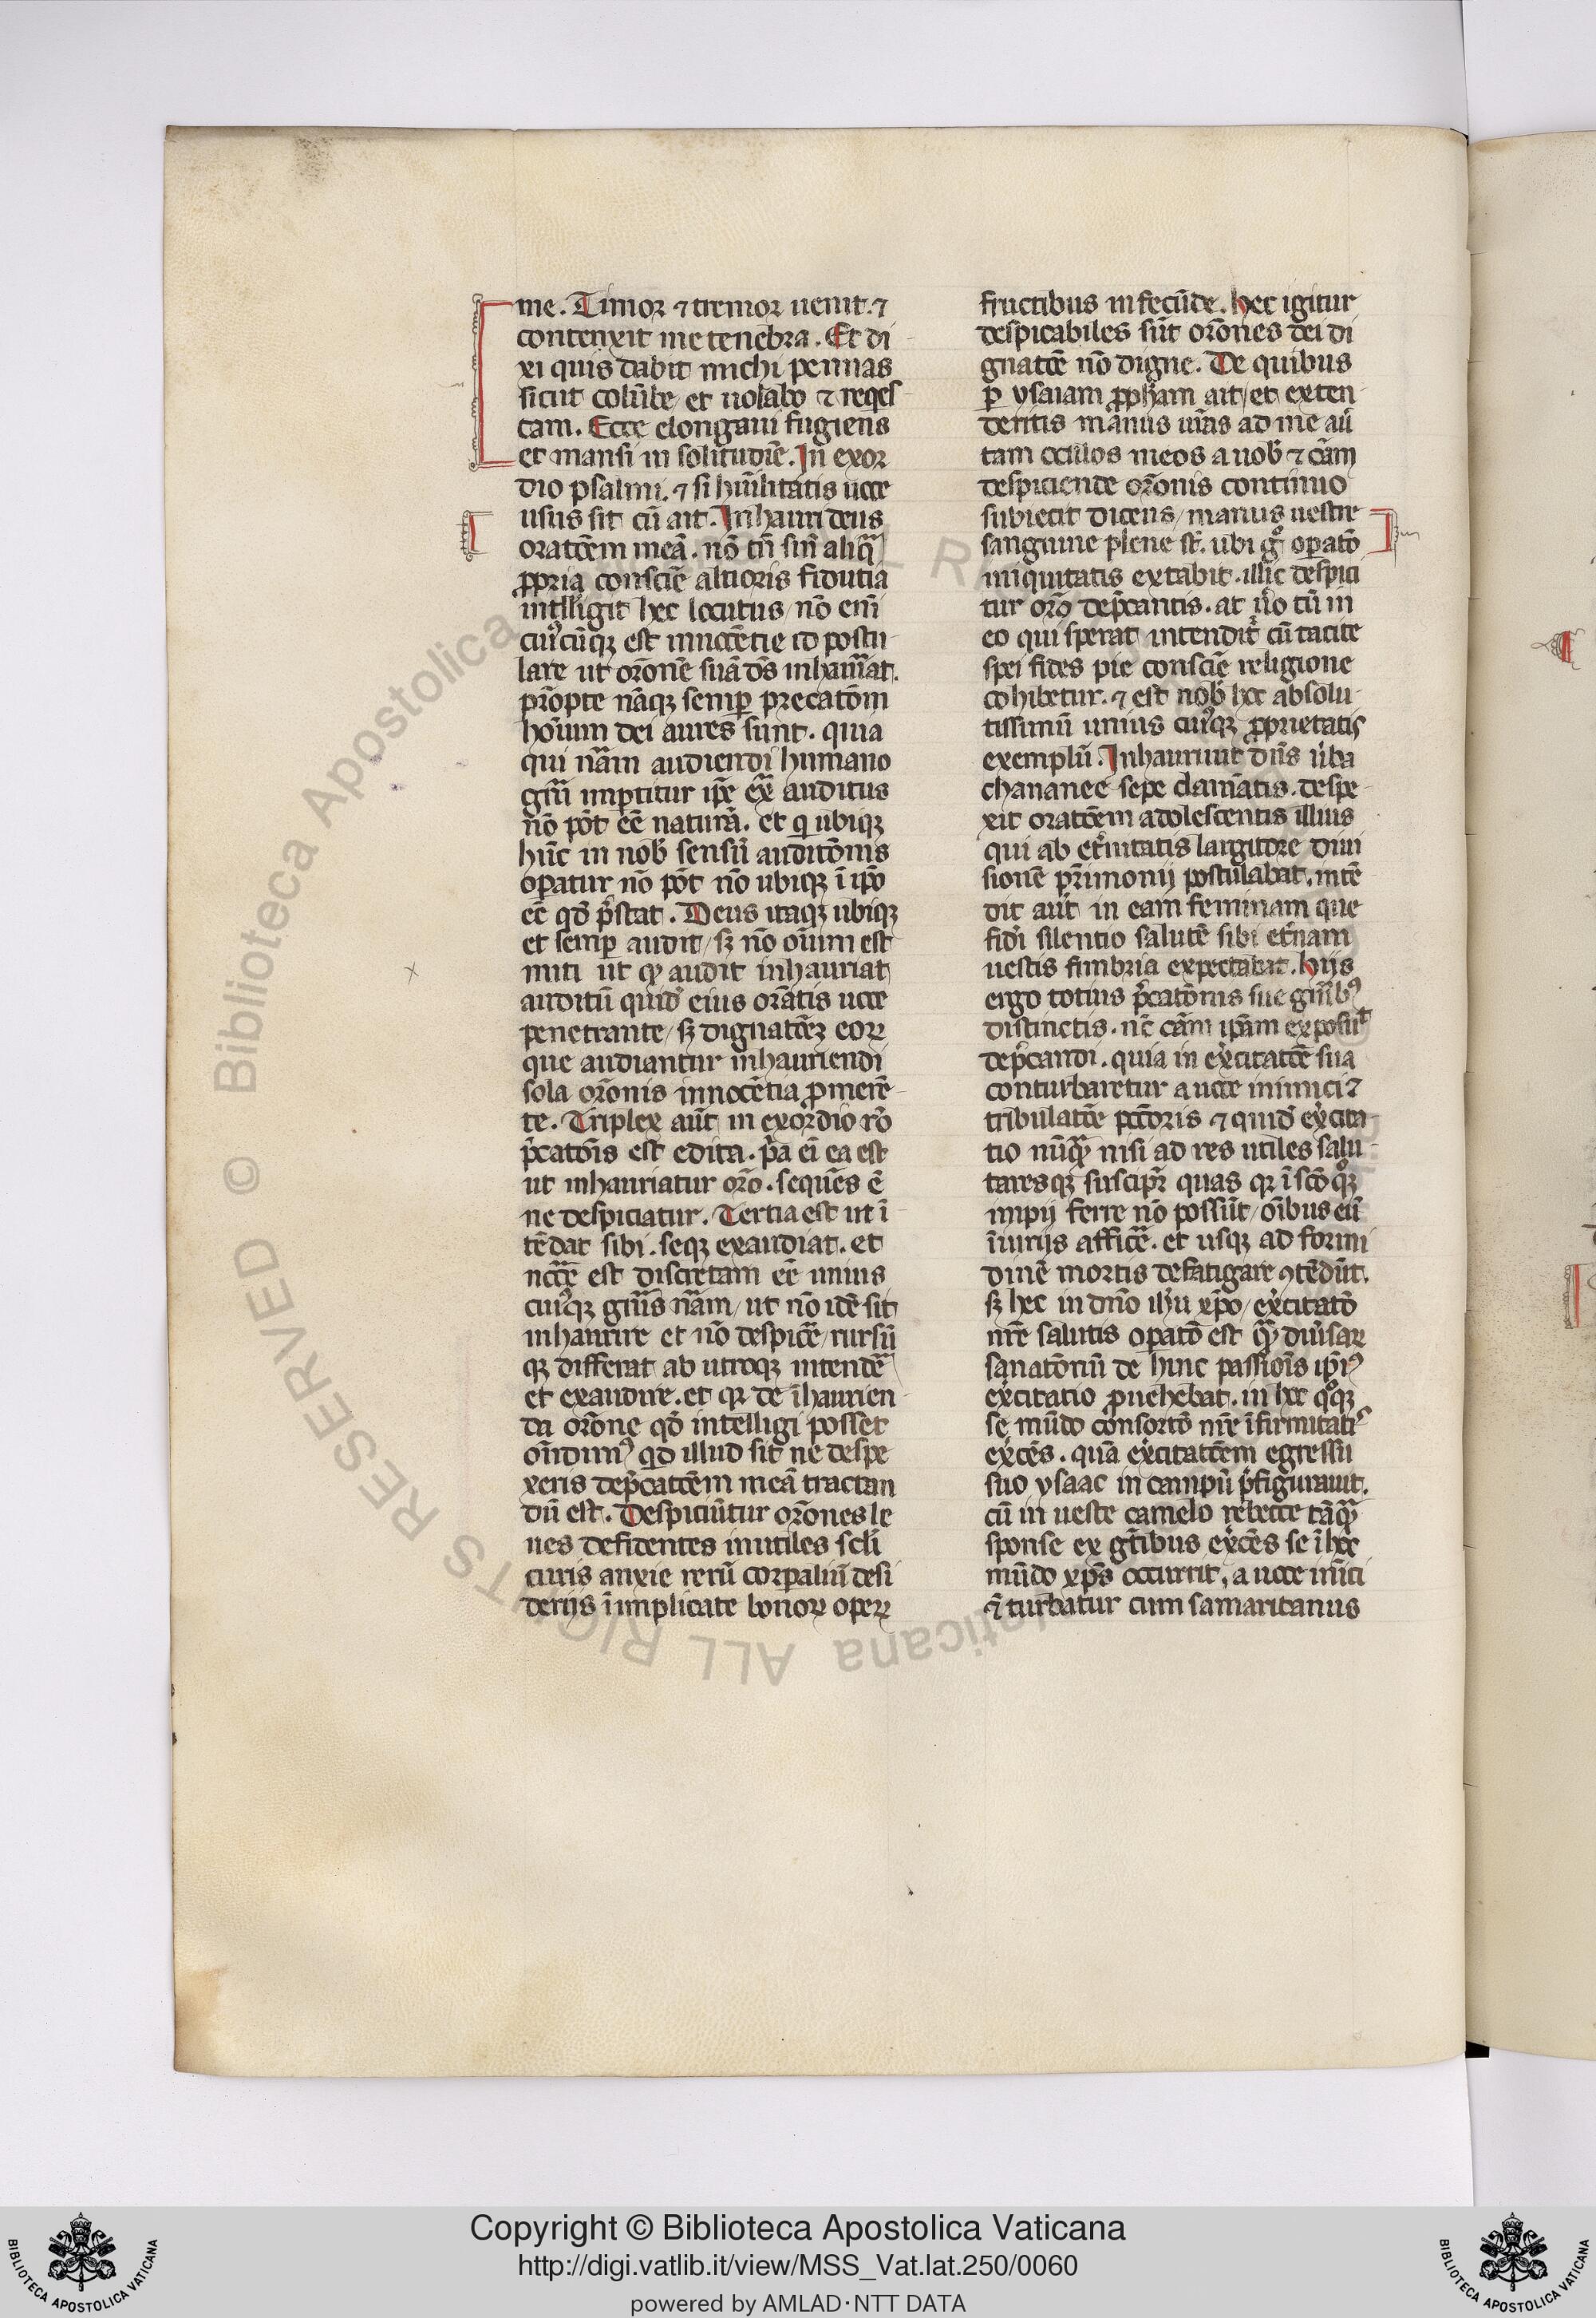 me. Timor ⁊ tremor uenit. ⁊
contenxit me tenebra. Et di
xi quis dabit michi pennas
sicut colūbe / et uolabo ⁊ reqͥes
cam. Ecce elongaui fugiens
et mansi in solitudīe. In exor
dio psalmi. ⁊ si hūilitatis uoce
usus sit cū ait. Inhauri deus
oratōem meā. nō tn̄ sine aliqͣ
ꝓpria consciē altioris fidutia
intelligit hec locutus / nō enī
cuiꝰcūqꝫ est innocētie id postu
lare ut orōnē suā dō̄s inhauriat.
prōpte nāqꝫ semꝑ precatōm
hoīum dei aures sunt. quia
qui nām audiendi humano
gn̄i imꝑtitur ip̄e ex̄ auditus
nō pōt eē naturā. et q̄ ubiqꝫ
hūc in nob̄ sensū auditōnis
oꝑatur nō pōt nō ubiqꝫ ī ip̄o
eē qd̄ p̄stat. Deus itaqꝫ ubiqꝫ
et semꝑ audit / sꝫ nō oīum est
miti ut qd̄ audit inhauriat
auditū quidē eius orātis uoce
penetrante / sꝫ dignatōeꝫ eoꝝ
que audiantur inhauriendi
sola orōnis innocētia ꝓmerē
te. Triplex aūt in exordio rō
p̄catōis est edita. pͣa ei ea est
ut inhauriatur orō. sequēs ē
ne despiciatur. Tertia est ut ī
tēdat sibi. seqꝫ exaudiat. et
nccē est discretam eē unius
cuiꝰqꝫ gn̄is nām / ut nō idē sit
inhaurire et nō despicē / rursū
qꝫ differat ab utroqꝫ intendē
et exaudire. et qꝛ de īhaurien
da orōne qd̄ intelligi posset
on̄dimꝰ qd illud sit ne despe
xeris dep̄catōem meā tractan
dū est. Despiciūtur orōnes le
ues defidentes inutiles sc̄li
curis anxie rerū corꝑaliū desi
derijs īimplicate bonoꝝ opeꝝ
fructibus infecūde. hec igitur
despicabiles sūt orōnes dei di
gnatōe nō digne. De quibus
ꝑ ysaiam ꝓph̄am ait / et exten
dentis manus ūras ad me aū
tam oculos meos a uob̄ ⁊ cām
despiciende orōnis continuo
subiecit dicens / manus uestre
sanguine plene st̄. ubi gͦ oꝑatō
iniquitatis extabit. illīc despici
tur orō dep̄cantis. at ūo tū in
eo qui sperat intendit᷑ cū tacite
spei fides pie consciē religione
cohibetur. ⁊ est nob̄ hec absolu
tissimū unius cuiꝰqꝫ ꝓprietatis
exemplū. Inhauriuit dn̄s ūba
chananee sepe clamātis. despe
xit oratōem adolescentis illius
qui ab et̄nitatis largitore diui
sionē pr̄imonij postulabat. intē
dit aūt in eam feminam que
fidi silentio salutē sibi et̄nam
uestis fimbria expectabat. hijs
ergo totius p̄catōnis sue gn̄ibꝰ
distinctis. nē cām ipām exposuit
dep̄candi. quia in ex̄citatōe sua
conturbaretur a uoce inimici ⁊
tribulatōe pcc̄oris ⁊ quidē ex̄cita
tio nūqͣ nisi ad res utiles salu
taresqꝫ suscipit᷑ quas qꝛ ī sc̄o qͦqꝫ
impij ferre nō possūt / oībus eū
īiurijs afficē. et usqꝫ ad formi
dinē mortis defatigare ꝯtēdūt.
sꝫ hec in dn̄o ih̄u xp̄o / ex̄citatō
nr̄e salutis oꝑatō est qͣ diu̾saꝝ
sanatōnū de hinc passiōis ip̄iꝰ
ex̄citatio ꝓuehebat. in hec qͦqꝫ
se mūdo consortō nr̄e īfirmitatis
ex̄cēs. quā ex̄citatōem egressu
suo ysaac in campū p̄figurauit.
cū in ueste camelo rebecce tāqͣ
sponse ex gētibus ex̄cēs se ī hec
mūdo xp̄s occurrit, a uoce inīci
ꝯturbatur cum samaritanus
Copyright © Biblioteca Apostolica Vaticana
http://digi.vatlib.it/view/MSS_Vat.lat.250/0060
powered by AMLAD·NTT DATA